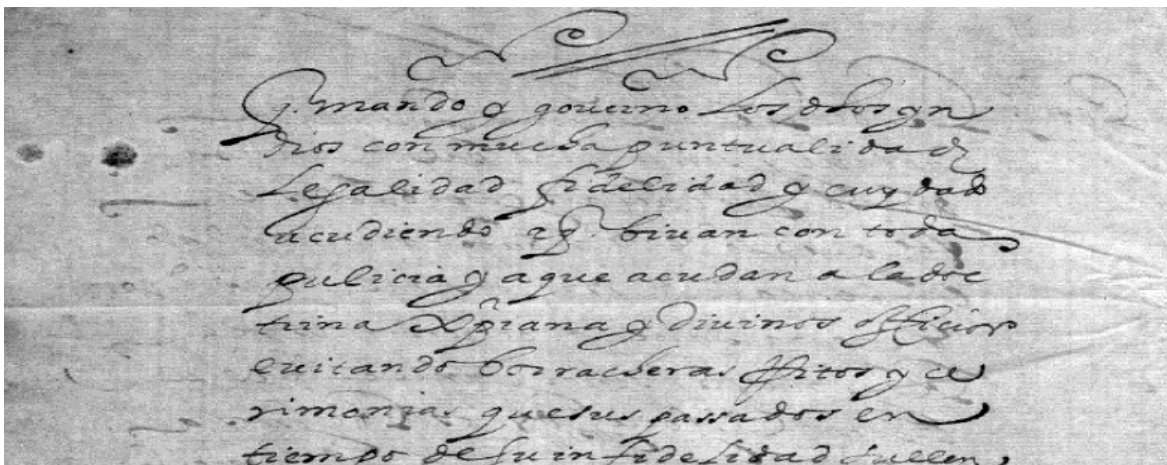 q. mando y governo Los dhos yn
dios con mucha puntualidad
Legalidad fidelidad y cuydado
acudiendo a q. bivan con toda
pulicia y a que acudan a la doc
trina Xpiana y divinos officios
evitando borracheras Ritos y ce
rimonias que sus passados en
tiempo de su infidelidad